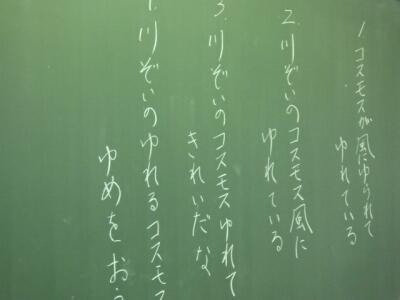 1. コスモスが風にゆられて
ゆれている
2. 川ぞいのコスモス風に
ゆれている
3. 川ぞいのコスモスゆれて
きれいだな
川ぞいのゆれるコスモス
ゆめをお